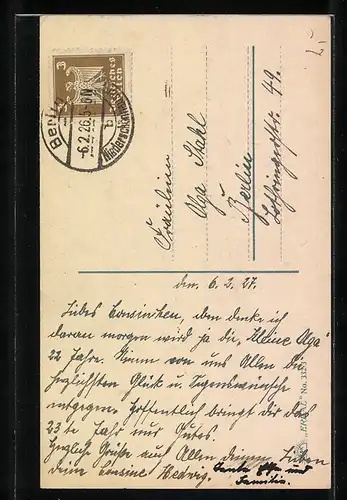 Berlin
-6.2.26.5-6N
b
Niederschönhausen
3
Deutsches Reich
2,-
Fräulein
Olga Stahl
Berlin
Lothringerstr. 49.
den 6. 2. 27.
Liebes Cousinchen, eben denke ich
daran morgen wird ja die „kleine Olga“
22 Jahre. Nimm von uns Allen die
herzlichsten Glück u. Segenswünsche
entgegen. Hoffentlich bringt dir das
23te Jahr nur Gutes.
Herzliche Grüße auf Allen deinen Lieben
deine Cousine Hedwig. Tante und
Familie.
"ERKAL" No.